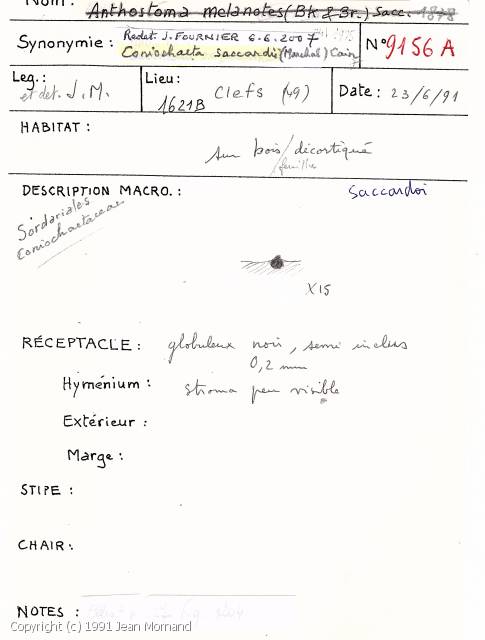 Nom :
Anthostoma melanotes (Bk & Br.) Sacc. 1878
Synonymie : Redet J. FOURNIER 6.6.2007
Coniochaeta saccardoi (Marchal) Cain
N° 9156 A
Leg.: et det. J.M.
Lieu: Clefs (49)
1621B
Date: 23/6/91
HABITAT :
sur bois décortiqué
feuillu
DESCRIPTION MACRO. :
saccardoi
Sordariales
Coniochaetaceae
X15
RÉCEPTACLE : globuleux noir, semi inclus
0,2 mm
Hyménium : stroma peu visible
Extérieur :
Marge :
STIPE :
CHAIR :
NOTES :
Copyright (c) 1991 Jean Mornand